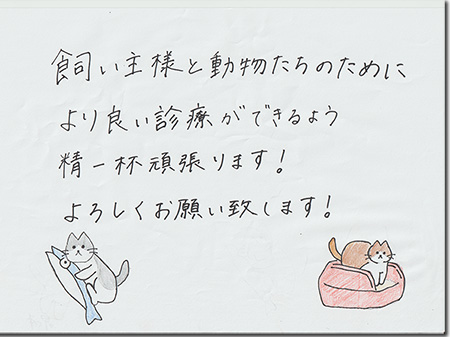 飼い主様と動物たちのために
より良い診療ができるよう
精一杯頑張ります!
よろしくお願い致します!